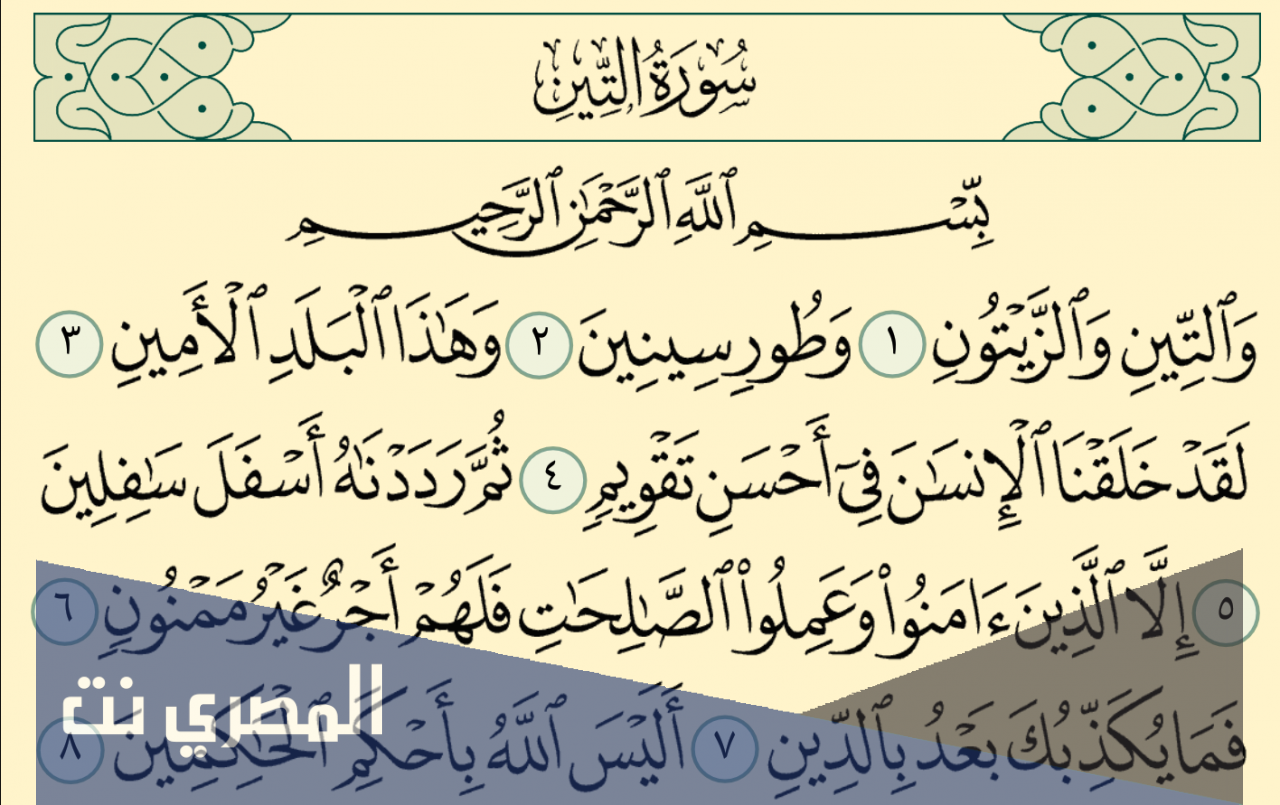 سُورَةُ التِّينِ
بِّسْمِ ٱللَّهِ ٱلرَّحْمَٰنِ ٱلرَّحِيمِ
وَٱلتِّينِ وَٱلزَّيْتُونِ ١ وَطُورِ سِينِينَ ٢ وَهَٰذَا ٱلْبَلَدِ ٱلْأَمِينِ ٣
لَقَدْ خَلَقْنَا ٱلْإِنسَٰنَ فِىٓ أَحْسَنِ تَقْوِيمٍ ٤ ثُمَّ رَدَدْنَٰهُ أَسْفَلَ سَٰفِلِينَ
٥ إِلَّا ٱلَّذِينَ ءَامَنُوا۟ وَعَمِلُوا۟ ٱلصَّٰلِحَٰتِ فَلَهُمْ أَجْرٌ غَيْرُ مَمْنُونٍ ٦
فَمَا يُكَذِّبُكَ بَعْدُ بِٱلدِّينِ ٧ أَلَيْسَ ٱللَّهُ بِأَحْكَمِ ٱلْحَٰكِمِينَ ٨
المصري نت